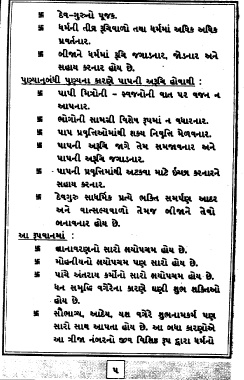 દેવ-ગુરુનો પૂજક.
ધર્મની તીવ્ર રૂચિવાળો તથા ધર્મમાં અધિક અધિક
પ્રવર્તનાર.
બીજાને ધર્મમાં રૂચિ જગાડનાર, જોડનાર અને
સહાય કરનાર હોય છે.
પુણ્યાનુબંધી પુણ્યના કારણે પાપની અરૂચિ હોવાથી :
પાપી મિત્રોની - સ્વજનોની વાત પર વજન ન
આપનાર.
ભોગોની સામગ્રી વિશેષ રૂપમાં ન વધારનાર.
પાપ પ્રવૃત્તિઓમાંથી શક્ય નિવૃત્તિ મેળવનાર.
પાપની અરૂચિ જાગે તેમ સમજાવનાર અને
પાપની અરૂચિ જગાડનાર.
પાપની પ્રવૃત્તિમાંથી અટકવા માટે ઇચ્છા કરનારને
સહાય કરનાર.
દેવગુરુ સાધર્મિક પ્રત્યે ભક્તિ સમર્પણ આદર
અને વાત્સલ્યવાળો તેમજ બીજાને તેવો
બનાવનાર હોય છે.
આ રૂપવાનમાં :
જ્ઞાનાવરણનો સારો ક્ષયોપશમ હોય છે.
મોહનીયનો ક્ષયોપશમ પણ સારો હોય છે.
પાંચે અંતરાય કર્મોનો સારો ક્ષયોપશમ હોય છે.
ધન સમૃદ્ધિ વગેરેના કારણે ઘણી શુભ શક્તિઓ
હોય છે.
સૌભાગ્ય, આદેય, યશ વગેરે શુભનામકર્મ પણ
સારો સાથ આપતા હોય છે. આ બધા કારણોએ
આ ત્રીજા નંબરનો જીવ વિશિષ્ટ રૂપ દ્વારા ધર્મનો
૫